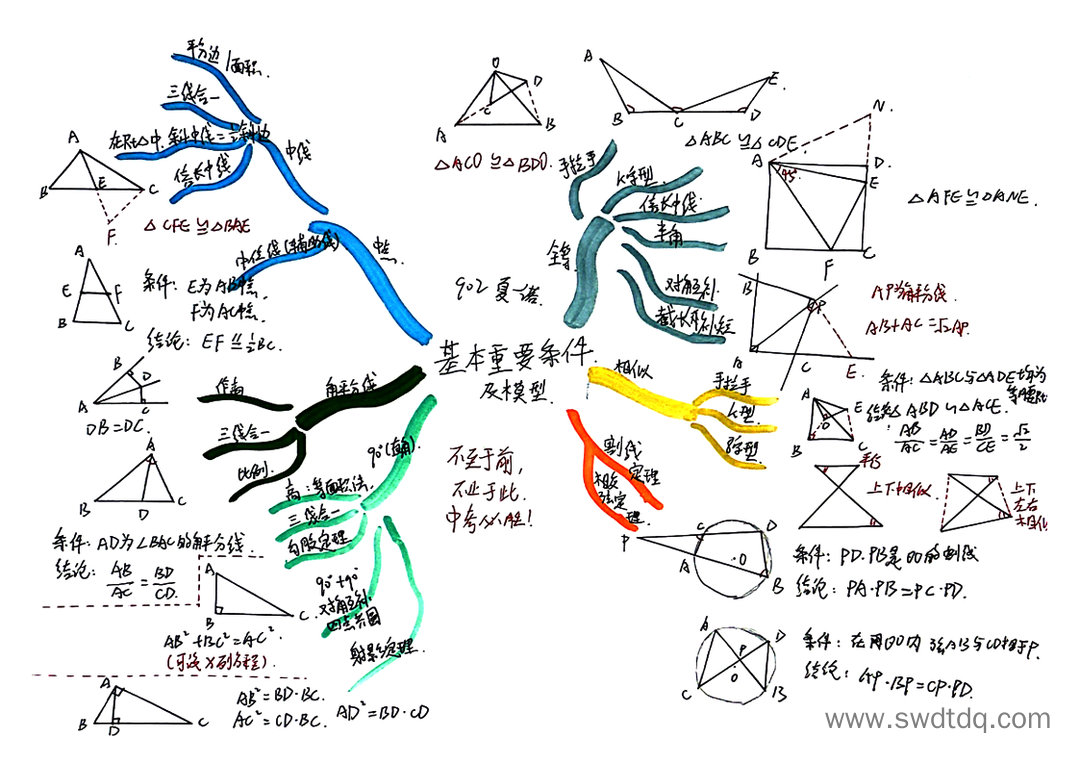 基本重要条件
及模型
902 夏
中点
中线
平分边/面积
三线合一
在Rt△中,斜中线=½斜边
倍长中线
中位线(辅助线)
A
B E C
F
△CFE≌△BAE
A
E F
B C
条件: E为AB中点
F为AC中点
结论: EF ½BC.
角平分线
作高
三线合一
比例
B
D
A C
DB=DC.
A
B D C
条件: AD为∠BAC的角平分线
结论: AB/AC = BD/CD.
90°
高:等面积法
三线合一
勾股定理
90°+90°
对角互补
四点共圆
射影定理
A
B C
AB²+BC²=AC²
(可设X列方程)
A
B D C
AB²=BD·BC.
AC²=CD·BC.
AD²=BD·CD
不至于前,
不止于此.
中考必胜!
全等
手拉手
K字型
倍长中线
半角
对角互补
截长补短
O
D
C
A B
△ACO≌△BDO.
A
E
B C D
△ABC≌△CDE.
N
A D
45°
E
B F C
△AFE≌△ANE.
B
P
A E
AP为角平分线
AB+AC=√2AP.
相似
手拉手
K型
8字型
条件: △ABC与△ADE均为
等腰Rt
结论△ABD∽△ACE.
AB/AC = AD/AE = BD/CE = √2/2
A
E
D
B C
平行
上下相似
上下
左右
相似
割线
定理
相交
弦定
理
P C D
A O
B
条件: PD.PB是⊙O的割线
结论: PA·PB=PC·PD.
A D
P
O
C B
条件: 在⊙O内 弦AB与CD相交于P.
结论: AP·BP=CP·PD.
www.swdtdq.com